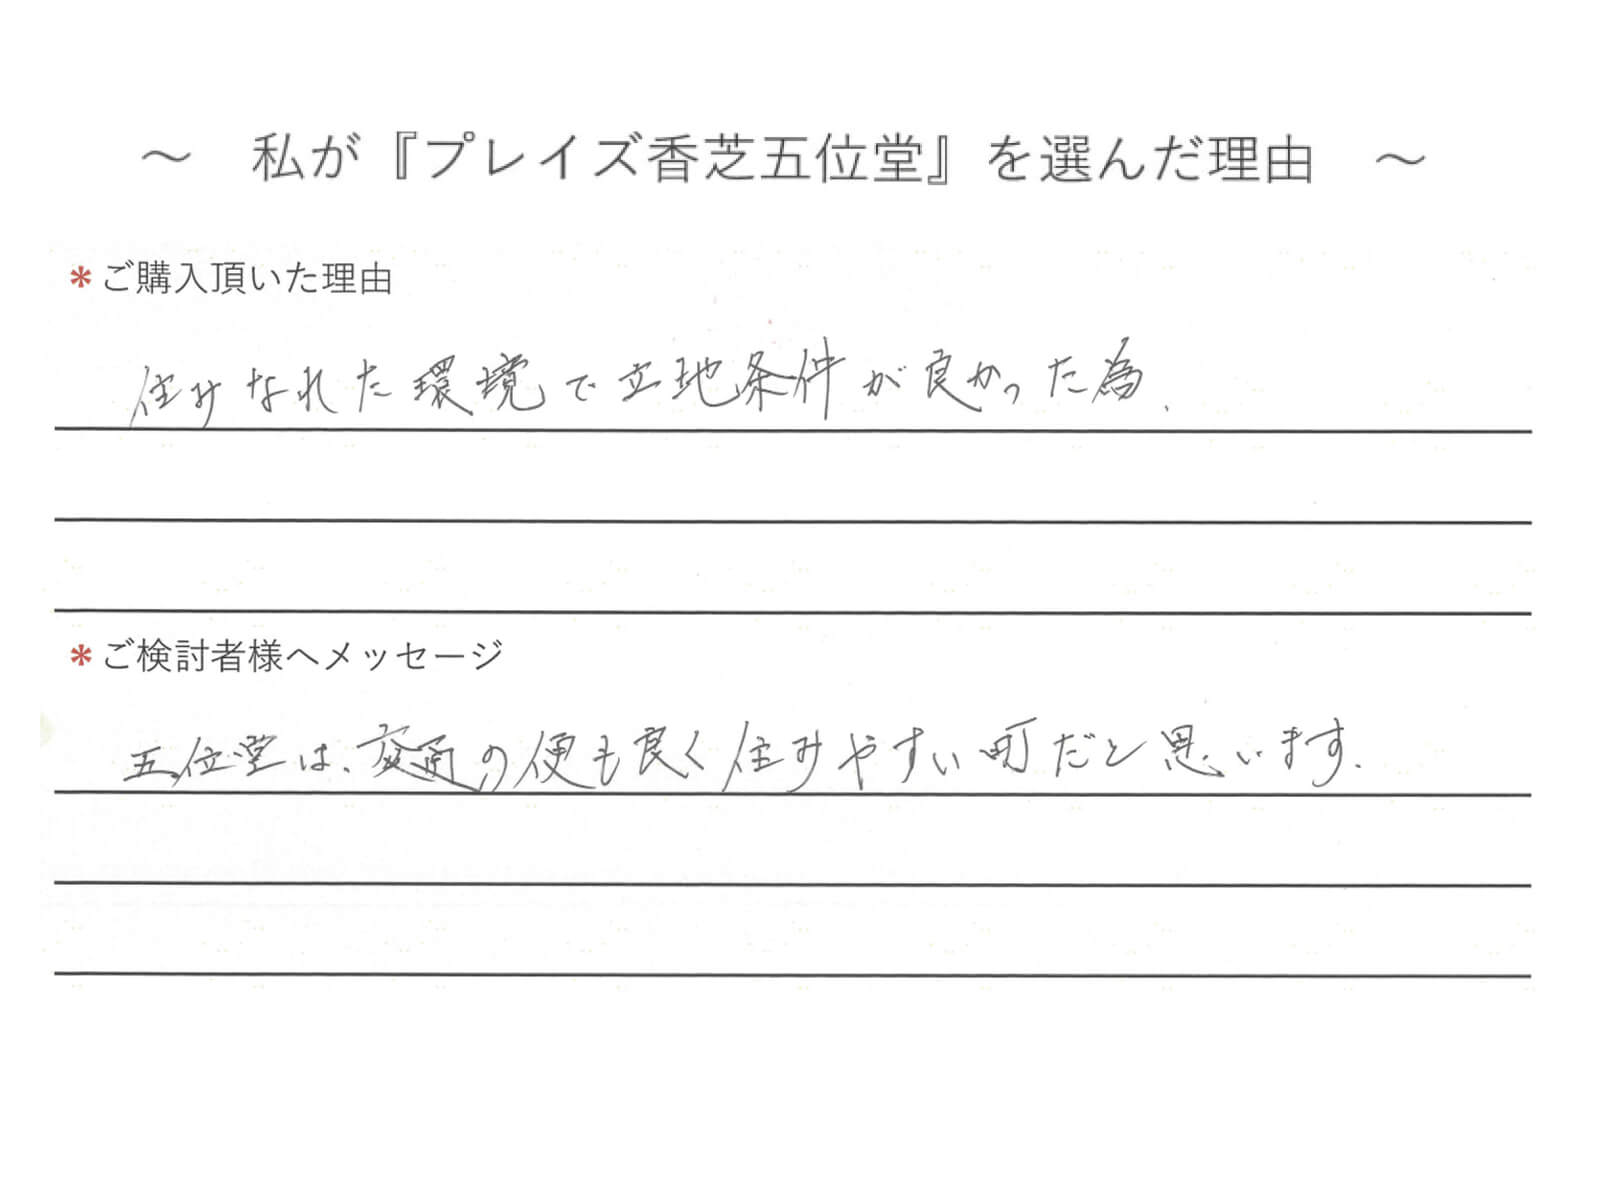 ～　私が『プレイズ香芝五位堂』を選んだ理由　～
*ご購入頂いた理由
住みなれた環境で立地条件が良かった為.
*ご検討者様へメッセージ
五位堂は、交通の便も良く住みやすい町だと思います.